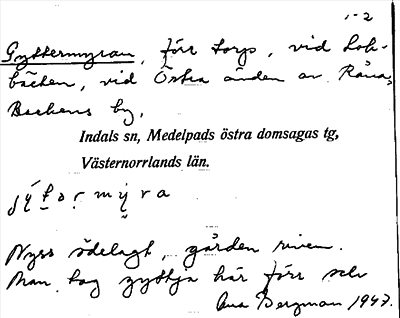 1-2
Gyttermyran, förr torp, vid Lok-
bäcken, vid Östra änden av Råna,
Backens by,
Indals sn, Medelpads östra domsagas tg,
Västernorrlands län.
Nyss ödelagt, gården riven.
Man tog gyttja här förr
Bergman 1947.